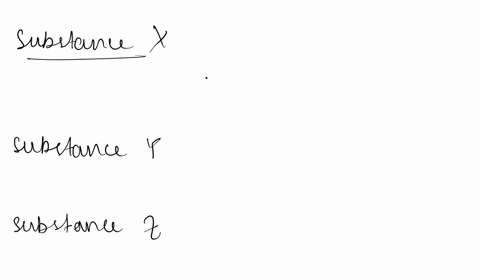 substance X
substance Y
substance Z